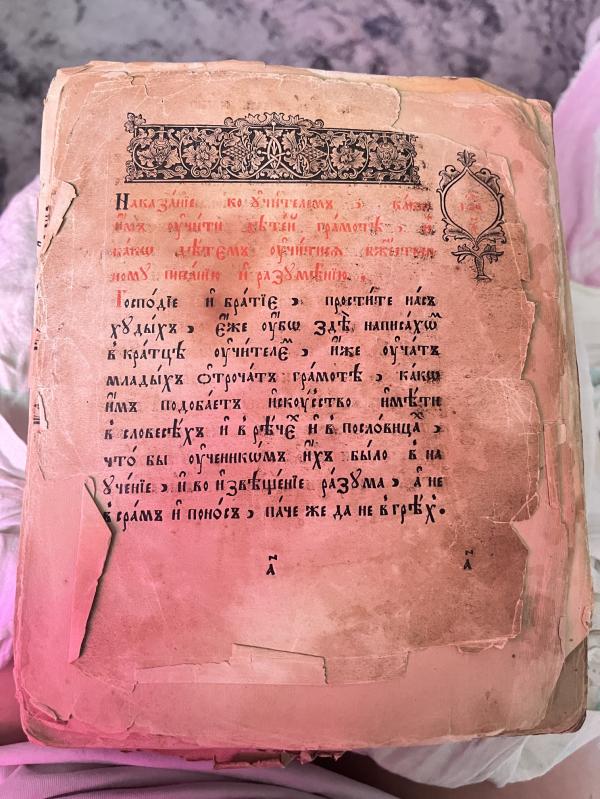 Наказа́нїе ко ᲂу҆чи́телемъ , ка́кѡ
и҆́мъ ᲂу҆чи́ти дѣте́й гра́мотѣ , и҆
ка́кѡ дѣ́темъ ᲂу҆чи́тисѧ бж҃е́ственному
писа́нїю и҆ ра́зꙋмѣнїю .
Госпо́дїе и҆ бра́тїє , прости́те на́съ
хꙋды́хъ , є҆́же ᲂу҆́бѡ здѣ̀ написа́хѡⷨ
в кра́тцѣ ᲂу҆чи́телєⷨ , и҆́же ᲂу҆ча́тъ
млады́хъ ѻ҆троча́тъ гра́мотѣ , ка́кѡ
и҆́мъ подоба́етъ и҆скꙋ́сство и҆мѣ́ти
в словесѣ́хъ и҆ в рѣ́чеⷯ и҆ в посло́вицаⷯ ,
что́ бы ᲂу҆ченикѡ́мъ и҆́хъ бы́ло в на
ᲂу҆че́нїе , и҆ во и҆звѣще́нїе ра́зꙋма , а҆ не
в сра́мъ и҆ поно́съ , па́че же да не в грѣ́хъ .
а҃ а҃